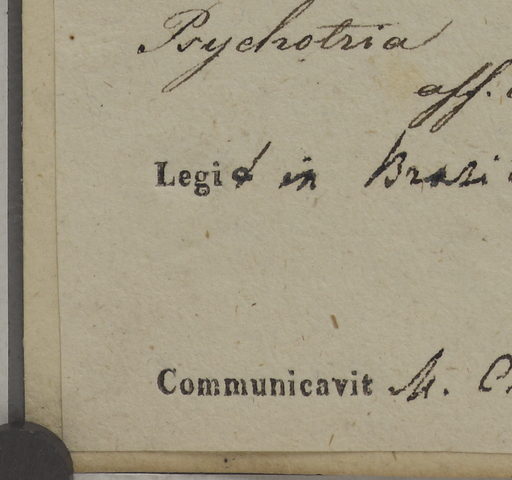 Psychotria
aff.
Legit in Brasi
Communicavit M. C